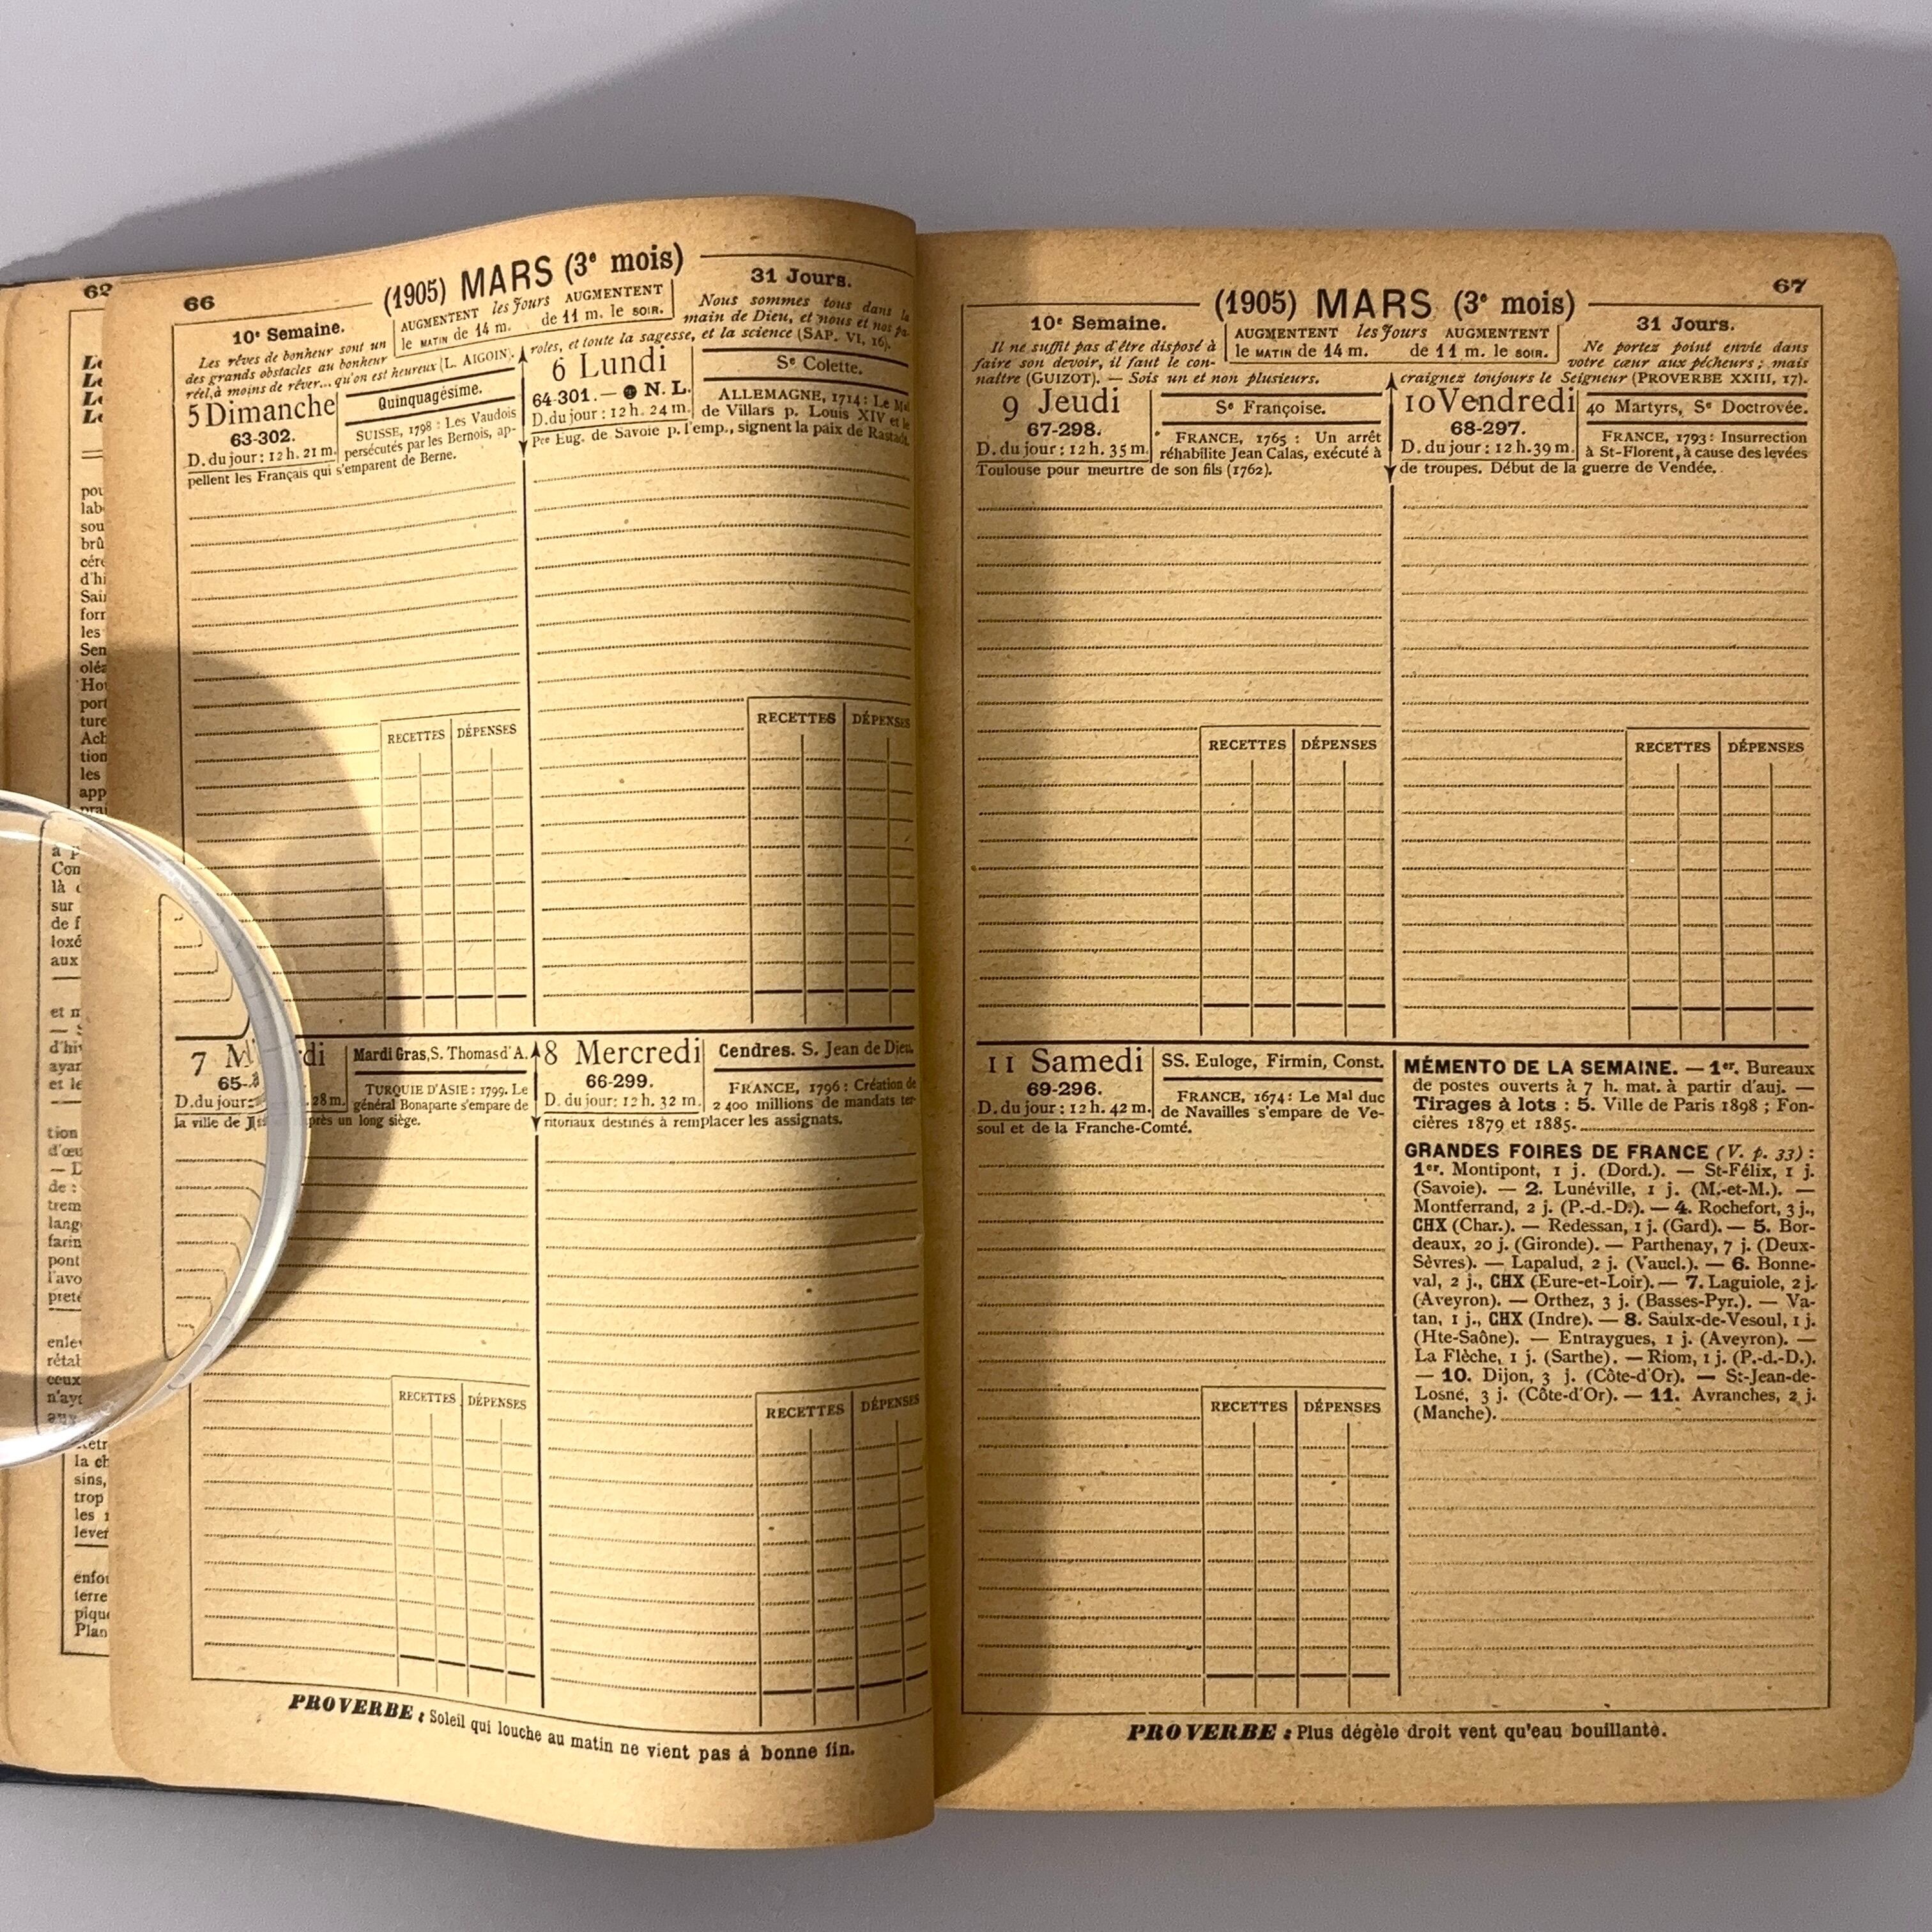 62
Le
Le
Le
Le
pou
lab
sou
brû
céré
d'hi
Sai
form
les
Sen
oléa
Hou
port
ture
Ach
tion
les
app
prai
à p
Con
là c
sur
de f
loxé
aux
et m
d'hiv
ayan
et le
tion
d'œu
— D
de :
trem
lang
farin
pont
l'avo
preté
enlev
rétab
ceux
n'aye
aux
la ch
sins,
trop
les
lever
enfou
terre
pique
Plan
66
(1905) MARS (3e mois)
31 Jours.
10e Semaine.
AUGMENTENT les Jours AUGMENTENT
le MATIN de 14 m. de 11 m. le SOIR.
Les rêves de bonheur sont un
des grands obstacles au bonheur
réel, à moins de rêver... qu'on est heureux (L. AIGOIN).
Nous sommes tous dans la
main de Dieu, et nous et nos pa-
roles, et toute la sagesse, et la science (SAP. VI, 16).
5 Dimanche
63-302.
D. du jour : 12 h. 21 m.
Quinquagésime.
SUISSE, 1798 : Les Vaudois
persécutés par les Bernois, ap-
pellent les Français qui s'emparent de Berne.
RECETTES DÉPENSES
6 Lundi
64-301. — N. L.
D. du jour : 12 h. 24 m.
Se Colette.
ALLEMAGNE, 1714 : Le Mal
de Villars p. Louis XIV et le
Pce Eug. de Savoie p. l'emp., signent la paix de Rastadt.
RECETTES DÉPENSES
7 Mardi
65-
D. du jour : 28 m.
Mardi Gras, S. Thomas d'A.
TURQUIE D'ASIE : 1799. Le
général Bonaparte s'empare de
la ville de après un long siège.
RECETTES DÉPENSES
8 Mercredi
66-299.
D. du jour : 12 h. 32 m.
Cendres. S. Jean de Dieu.
FRANCE, 1796 : Création de
2 400 millions de mandats ter-
ritoriaux destinés à remplacer les assignats.
RECETTES DÉPENSES
PROVERBE : Soleil qui louche au matin ne vient pas à bonne fin.
67
(1905) MARS (3e mois)
10e Semaine.
AUGMENTENT les Jours AUGMENTENT
le MATIN de 14 m. de 11 m. le SOIR.
31 Jours.
Il ne suffit pas d'être disposé à
faire son devoir, il faut le con-
naître (GUIZOT). — Sois un et non plusieurs.
Ne portez point envie dans
votre cœur aux pécheurs ; mais
craignez toujours le Seigneur (PROVERBE XXIII, 17).
9 Jeudi
67-298.
D. du jour : 12 h. 35 m.
Se Françoise.
FRANCE, 1765 : Un arrêt
réhabilite Jean Calas, exécuté à
Toulouse pour meurtre de son fils (1762).
RECETTES DÉPENSES
10 Vendredi
68-297.
D. du jour : 12 h. 39 m.
40 Martyrs, Se Doctrovée.
FRANCE, 1793 : Insurrection
à St-Florent, à cause des levées
de troupes. Début de la guerre de Vendée.
RECETTES DÉPENSES
11 Samedi
69-296.
D. du jour : 12 h. 42 m.
SS. Euloge, Firmin, Const.
FRANCE, 1674 : Le Mal duc
de Navailles s'empare de Ve-
soul et de la Franche-Comté.
RECETTES DÉPENSES
MÉMENTO DE LA SEMAINE. — 1er. Bureaux
de postes ouverts à 7 h. mat. à partir d'auj. —
Tirages à lots : 5. Ville de Paris 1898 ; Fon-
cières 1879 et 1885.
GRANDES FOIRES DE FRANCE (V. p. 33) :
1er. Montipont, 1 j. (Dord.). — St-Félix, 1 j.
(Savoie). — 2. Lunéville, 1 j. (M.-et-M.). —
Montferrand, 2 j. (P.-d.-D.). — 4. Rochefort, 3 j.,
CHX (Char.). — Redessan, 1 j. (Gard). — 5. Bor-
deaux, 20 j. (Gironde). — Parthenay, 7 j. (Deux-
Sèvres). — Lapalud, 2 j. (Vaucl.). — 6. Bonne-
val, 2 j., CHX (Eure-et-Loir). — 7. Laguiole, 2 j.
(Aveyron). — Orthez, 3 j. (Basses-Pyr.). — Va-
tan, 1 j., CHX (Indre). — 8. Saulx-de-Vesoul, 1 j.
(Hte-Saône). — Entraygues, 1 j. (Aveyron). —
La Flèche, 1 j. (Sarthe). — Riom, 1 j. (P.-d.-D.).
— 10. Dijon, 3 j. (Côte-d'Or). — St-Jean-de-
Losne, 3 j. (Côte-d'Or). — 11. Avranches, 2 j.
(Manche).
PROVERBE : Plus dégèle droit vent qu'eau bouillante.